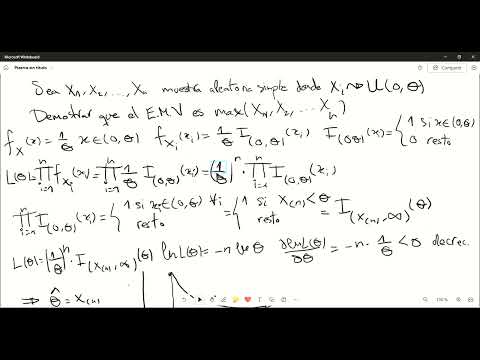 Microsoft Whiteboard
Pizarra sin título
Compartir
Sea X₁, X₂, ..., Xₙ muestra aleatoria simple donde Xᵢ ~> U(0, θ)
Demostrar que el E.M.V es max(X₁, X₂, ... Xₙ)
f_X(x) = 1/θ x∈(0,θ) f_{Xᵢ}(x) = 1/θ I_{(0,θ)}(xᵢ) I_{(0,θ)}(xᵢ) = { 1 si x∈(0,θ) 0 resto
L(θ) = ∏_{i=1}^n f_{Xᵢ}(x) = ∏_{i=1}^n 1/θ I_{(0,θ)}(xᵢ) = (1/θ)^n · ∏_{i=1}^n I_{(0,θ)}(xᵢ)
∏_{i=1}^n I_{(0,θ)}(xᵢ) = { 1 si xᵢ∈(0,θ) ∀i resto = { 1 si X₍ₙ₎ < θ resto = I_{(X₍ₙ₎, ∞)}(θ)
L(θ) = (1/θ)^n · I_{(X₍ₙ₎, ∞)}(θ) ln L(θ) = -n ln θ ∂ln L(θ)/∂θ = -n · 1/θ < 0 decrec.
⇒ θ̂ = X₍ₙ₎
100%